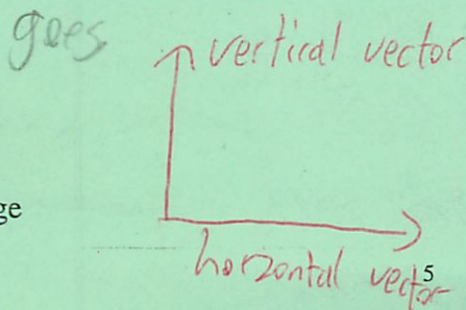 goes
vertical vector
ge
horzontal vector
5